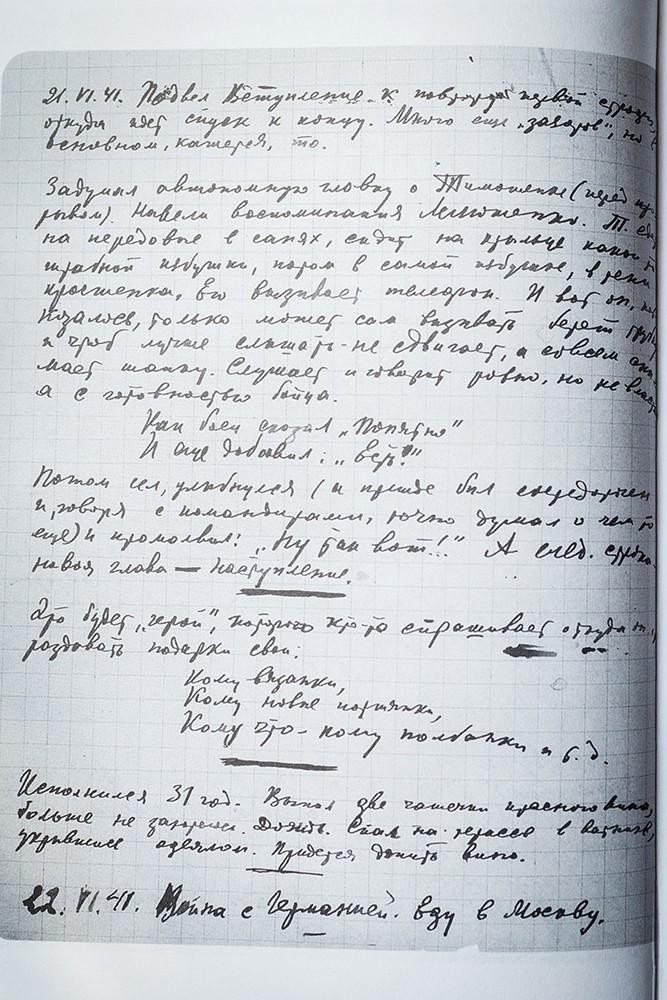 21.VI.41. Подвел Вступление к повтору первой строфы,
откуда идет спуск к концу. Много еще „зазоров", но в
основном, кажется, то.
Задумал автономную главку о Тимошенке (перед
рывом). Навели воспоминания Т.
на передовые в санях, сидит на крыльце какой-то
штабной избушки, потом в самой избушке, в
Его вызывает телефон. И вот он,
казалось, только может сам вызывать берет трубку
и чтоб лучше слышать - не сдвигает, а совсем сни-
мает шапку. Слушает и говорит ровно, но не
а с готовностью бойца.
Как боец сказал „Понятно"
И еще добавил: „Есть!"
Потом сел, улыбнулся (а прежде был сосредоточен
и, говоря с командирами, точно думал о чем-то
еще) и промолвил: „Ну так вот!.." А след. строка -
новая глава — наступление.
Это будет „герой", которого кто-то спрашивает откуда он,
раздавать подарки свои:
Кому вязанки,
Кому новые портянки,
Кому что - кому полбанки и т.д.
Исполнился 31 год. Выпил две чашечки красного вина,
больше не захотелось. Дождь. Спал на террасе в ватнике,
укрывшись одеялом. Придется допить вино.
22.VI.41. Война с Германией. Еду в Москву.